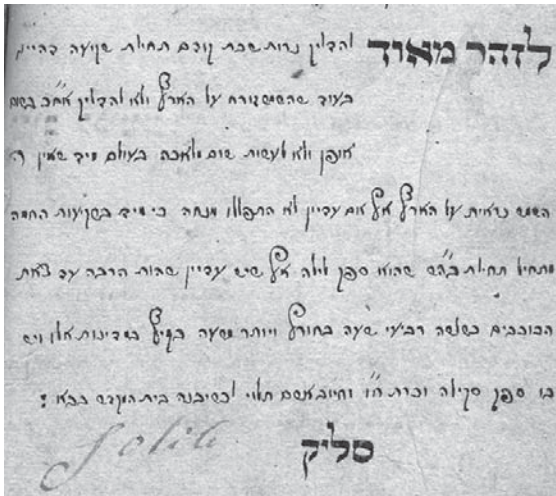 לזהר מאוד להדליק נרות שבת קודם תחילת שקיעה דהיינו
בעוד שהשמש זורח על הארץ ולא להדליק אח"כ בשום
אופן ולא לעשות שום מלאכה בעולם מיד שאין
השמש נראית על הארץ אף אם עדיין לא התפללו מנחה כי מיד בשקיעות החמה
מתחיל תחילת בה"ש שהוא ספק לילה אף שיש עדיין שהות הרבה עד צאת
הכוכבים כשלשה רביעי שעה בחורף ויותר משעה בקיץ במדינות אלו ויש
בו ספק סקילה וכרת ח"ו וחייב אשם תלוי לכשיבנה בית המקדש בב"א :
סליק